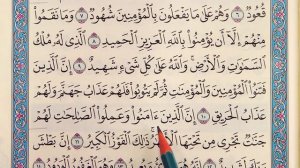 قُعُودٌ ٦ وَهُمْ عَلَىٰ مَا يَفْعَلُونَ بِالْمُؤْمِنِينَ شُهُودٌ ٧ وَمَا نَقَمُوا
مِنْهُمْ إِلَّا أَن يُؤْمِنُوا بِاللَّهِ الْعَزِيزِ الْحَمِيدِ ٨ الَّذِي لَهُ مُلْكُ
السَّمَٰوَٰتِ وَالْأَرْضِ وَاللَّهُ عَلَىٰ كُلِّ شَيْءٍ شَهِيدٌ ٩ إِنَّ الَّذِينَ
فَتَنُوا الْمُؤْمِنِينَ وَالْمُؤْمِنَٰتِ ثُمَّ لَمْ يَتُوبُوا فَلَهُمْ عَذَابُ جَهَنَّمَ وَلَهُمْ
عَذَابُ الْحَرِيقِ ١٠ إِنَّ الَّذِينَ ءَامَنُوا وَعَمِلُوا الصَّٰلِحَٰتِ لَهُمْ
جَنَّٰتٌ تَجْرِي مِن تَحْتِهَا الْأَنْهَٰرُ ذَٰلِكَ الْفَوْزُ الْكَبِيرُ ١١ إِنَّ بَطْشَ